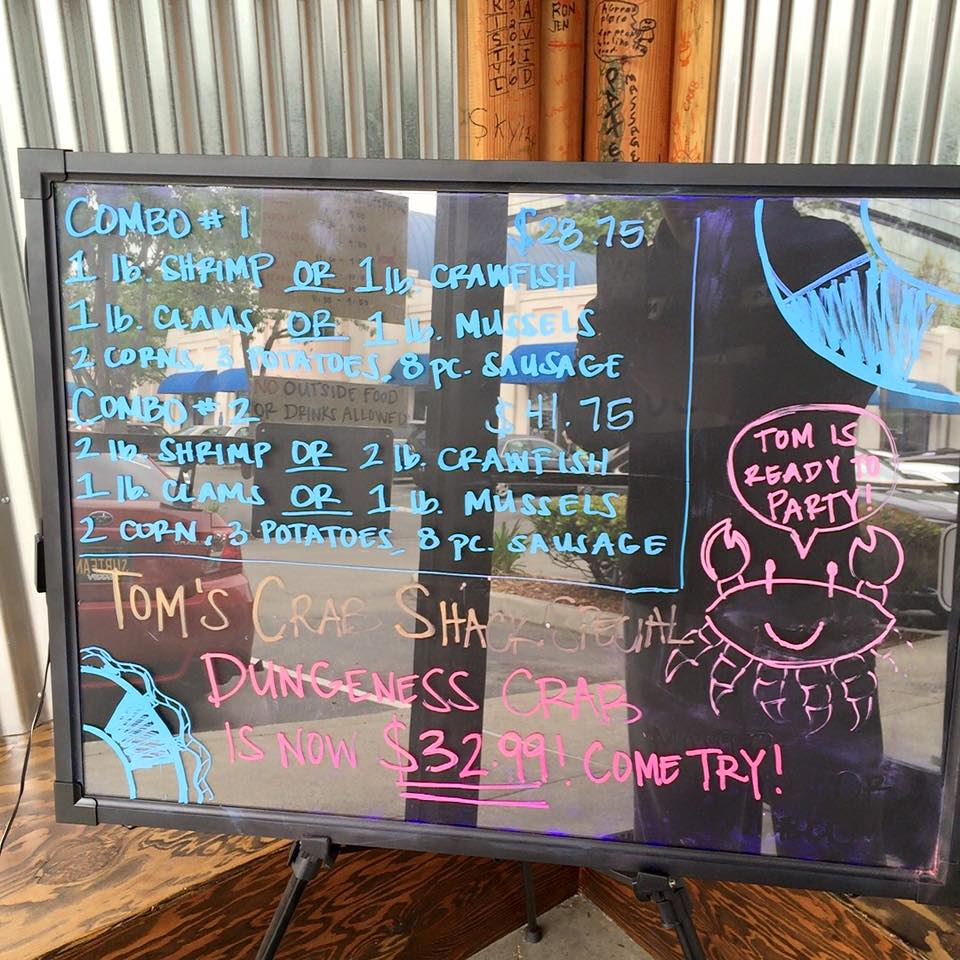 DAVID
RON
JEN
SKYL
COMBO # 1 $28.75
1 lb. SHRIMP OR 1 lb. CRAWFISH
1 lb. CLAMS OR 1 lb. MUSSELS
2 CORNS, 3 POTATOES, 8 pc. SAUSAGE
NO OUTSIDE FOOD
OR DRINKS ALLOWED
COMBO # 2 $41.75
2 lb. SHRIMP OR 2 lb. CRAWFISH
1 lb. CLAMS OR 1 lb. MUSSELS
2 CORN, 3 POTATOES, 8 pc. SAUSAGE
TOM IS
READY TO
PARTY!
TOM'S CRAB SHACK SPECIAL
DUNGENESS CRAB
IS NOW $32.99! COME TRY!